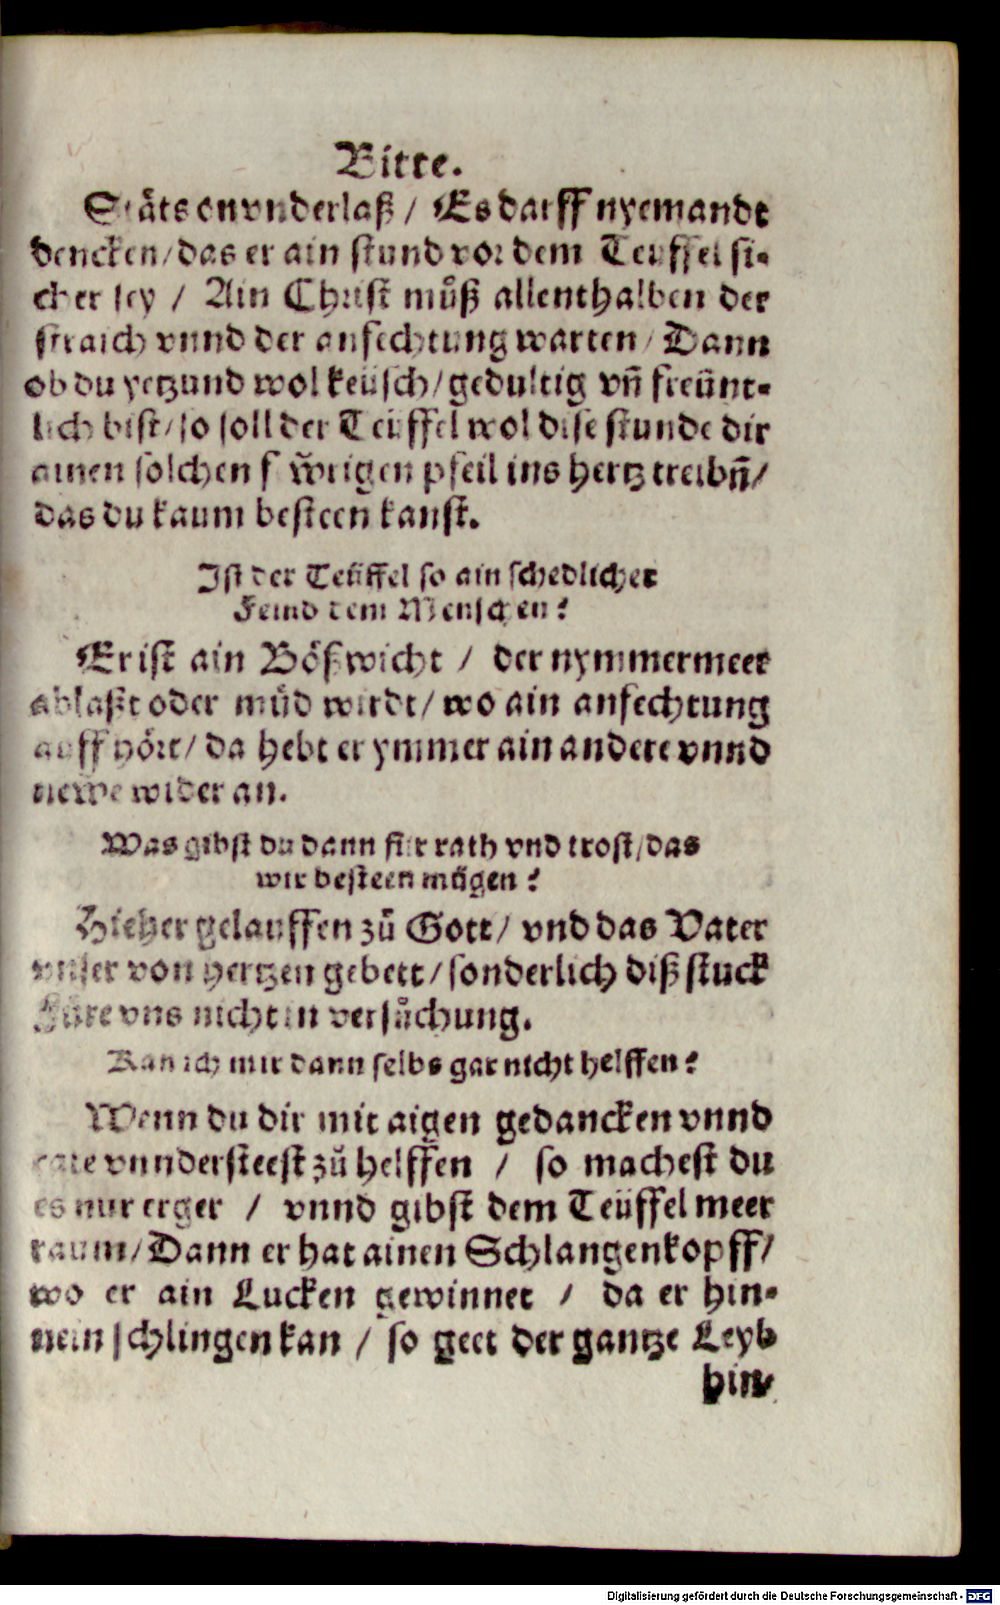 Bitte.
Stäts onvnderlaß / Es darff nyemandt
dencken / das er ain stund vor dem Teuffel si-
cher sey / Ain Christ můß allenthalben der
straich vnnd der anfechtung warten / Dann
ob du yetzund wol keüsch / gedultig vñ freünt-
lich bist / so soll der Teüffel wol dise stunde dir
ainen solchen pfeil ins hertz treibñ /
das du kaum besteen kanst.
Ist der Teüffel so ain schedlicher
Feind dem Menschen?
Er ist ain Bößwicht / der nymmermeer
ablaßt oder müd wirdt / wo ain anfechtung
auff hört / da hebt er ymmer ain andere vnnd
newe wider an.
Was gibst du dann für rath vnd trost / das
wir besteen mögen?
Hieher gelauffen zů Gott / vnd das Vater
vnser von hertzen gebett / sonderlich diß stuck
Füre vns nicht in versůchung.
Kan ich mir dann selbs gar nicht helffen?
Wenn du dir mit aigen gedancken vnnd
rate vnndersteest zů helffen / so machest du
es nur erger / vnnd gibst dem Teüffel meer
raum / Dann er hat ainen Schlangenkopff /
wo er ain Lucken gewinnet / da er hin-
nein schlingen kan / so geet der gantze Leyb
hin-
Digitalisierung gefördert durch die Deutsche Forschungsgemeinschaft - DFG